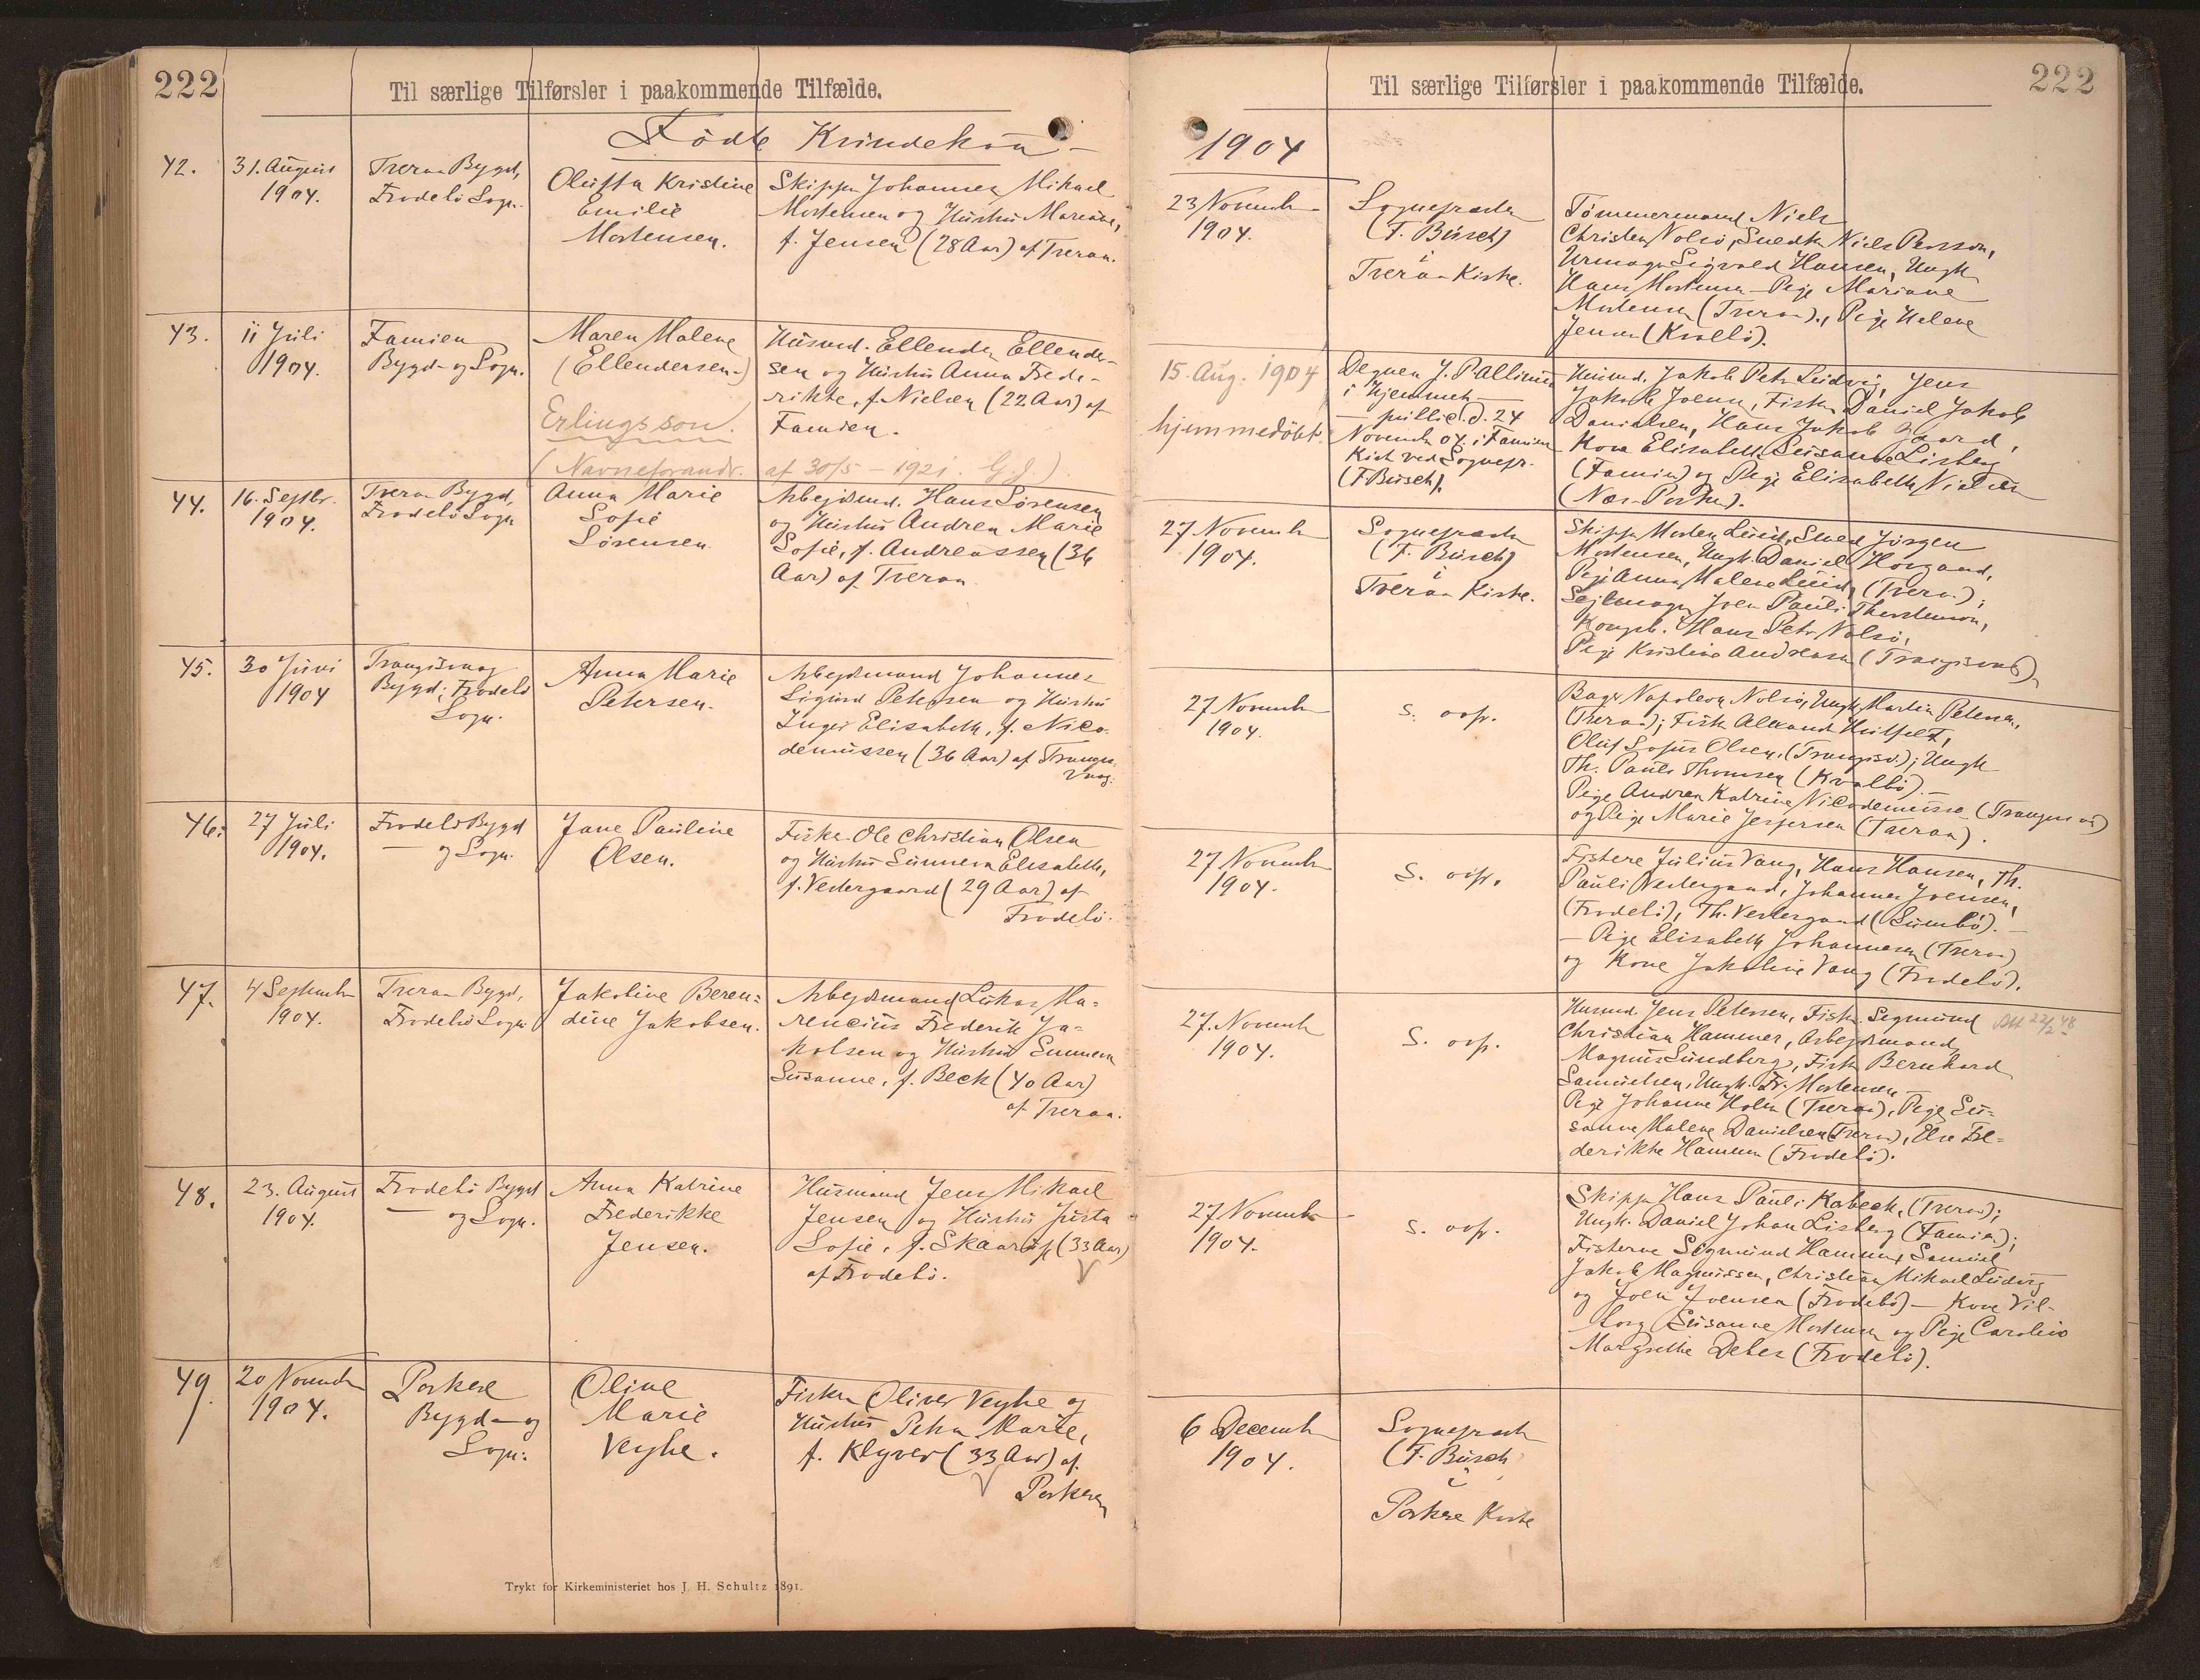 222
Til særlige Tilførsler i paakommende Tilfælde.
Födte Kvindekön
42.
31. August
1904.
Tveraa Bygd,
Frodebö Sogn.
Oluffa Kristine
Emilie
Mortensen.
Skipper Johannes Mikael
Mortensen og Hustru Mariane,
f. Jensen (28 Aar) af Tveraa.
43.
11 Juli
1904.
Famien
Bygd og Sogn.
Maren Malene
(Ellendersen)
Erlingsson.
(Navneforandr. af 30/5 - 1921. G.J.)
Husmd. Ellender Ellender-
sen og Hustru Anna Frede-
rikke, f. Nielsen (22 Aar) af
Famien.
44.
16. Septbr.
1904.
Tveraa Bygd,
Frodebö Sogn
Anna Marie
Sofie
Sörensen
Arbejdsmd. Hans Sörensen
og Hustru Andrea Marie
Sofie, f. Andreassen (36
Aar) af Tveraa.
45.
30 Juni
1904
Trangisvaag
Bygd; Frodebö
Sogn.
Anna Marie
Petersen.
Arbejdsmand Johannes
Sigurd Petersen og Hustru
Inger Elisabeth, f. Nico-
demussen (36 Aar) af Trangis-
vaag.
46.
27 Juli
1904.
Frodebö Bygd
og Sogn.
Jane Pauline
Olsen.
Fisker Ole Christian Olsen
og Hustru Sunneva Elisabeth,
f. Vestergaard (29 Aar) af
Frodebö.
47.
4 September
1904.
Tveraa Bygd,
Frodebö Sogn.
Jakobine Beren-
dine Jakobsen.
Arbejdsmand Lukas Ma-
rencius Frederik Ja-
kobsen og Hustru Sunneva
Susanne, f. Beck (40 Aar)
af Tveraa.
48.
23. August
1904.
Frodebö Bygd
og Sogn.
Anna Katrine
Frederikke
Jensen.
Husmand Jens Mikael
Jensen og Hustru Justa
Sofie, f. Skaarup (33 Aar)
af Frodebö.
49
20 November
1904.
Porkere
Bygd og
Sogn.
Oline
Marie
Veyhe.
Fisker Oliver Veyhe og
Hustru Petra Marie,
f. Klyver (33 Aar) af
Porkere
Trykt for Kirkeministeriet hos J. H. Schultz 1891.
222
Til særlige Tilførsler i paakommende Tilfælde.
1904
23 November
1904.
Sognepræsten
(F. Büsch)
i
Tveraa Kirke.
Tömmermand Niels
Christen Nolsö, Snedker Niels Persson,
Urmager Sigvald Hansen, Ungk.
Hans Mortensen - Pige Mariane
Mortensen (Tveraa)., Pige Helene
Jensen (Kvalbö).
15. Aug. 1904
hjemmedöbt.
Degnen J. P. Allinius
i Hjemmet
publice. d. 24
November 04. i Famien
Kirk ved Sognepr.
(F. Büsch).
Husmd. Jakob Peter Ludvig, Jens
Jakob Joensen, Fisker Daniel Jakob
Danielsen, Hans Jakob Gaard,
Kone Elisabeth Susanne Lisberg
(Famien) og Pige Elisabeth Nielsen
(Næs-Porkere).
27 November
1904.
Sognepræsten
(F. Büsch)
i
Tveraa Kirke.
Skipper Morten Lund, Smed Jörgen
Mortensen, Ungk. Daniel Horgand,
Pige Anna Malene Lund (Tveraa);
Sejlmager Joen Pauli Thorsteinson,
Kongsb. Hans Peter Nolsö,
Pige Kristine Andreasen (Trangisvaag)
27 November
1904.
S. ovfr.
Bager Napoleon Nolsö, Ungk. Martin Petersen,
(Tveraa); Fisker Alexand Huitfelt,
Oluf Sofus Olsen, (Trangisv.); Ungk.
Th. Pauli Thomsen (Kvalbö).
Pige Andrea Katrine Nicodemussen (Trangisvag)
og Pige Marie Jespersen (Tveraa).
27 November
1904.
S. ovfr.
Fiskere Julius Vang, Hans Hansen, Th.
Pauli Vestergaard, Johannes Joensen,
(Frodebö), Th. Vestergaard (Sumbö).
- Pige Elisabeth Johannesen (Tveraa)
og Kone Jakobine Vang (Frodebö).
27. November
1904.
S. ovfr.
Husmd. Jens Petersen, Fisker Segmund
22/2 48
Christian Hammer, Arbejdsmand
Magnus Sundberg, Fisker Bernhard
Samuelsen, Ungk. Fr. Mortensen
Pige Johanne Holm (Tveraa), Pige Su-
sanne Malene Danielsen (Tveraa), Else Fre-
derikke Hammer (Frodebö).
27 November
1904.
S. ovfr.
Skipper Hans Pauli Kobeck, (Tveraa);
Ungk. Daniel Johan Lisberg (Famien);
Fiskerne Segmund Hammer, Samuel
Jakob Magnussen, Christian Mikael Ludvig
og Joen Joensen (Frodebö) - Kone Vil-
borg Susanne Mortensen og Pige Caroline
Margrethe Debes (Frodebö).
6 December
1904.
Sognepræst
(F. Büsch
i
Porkere Kirke